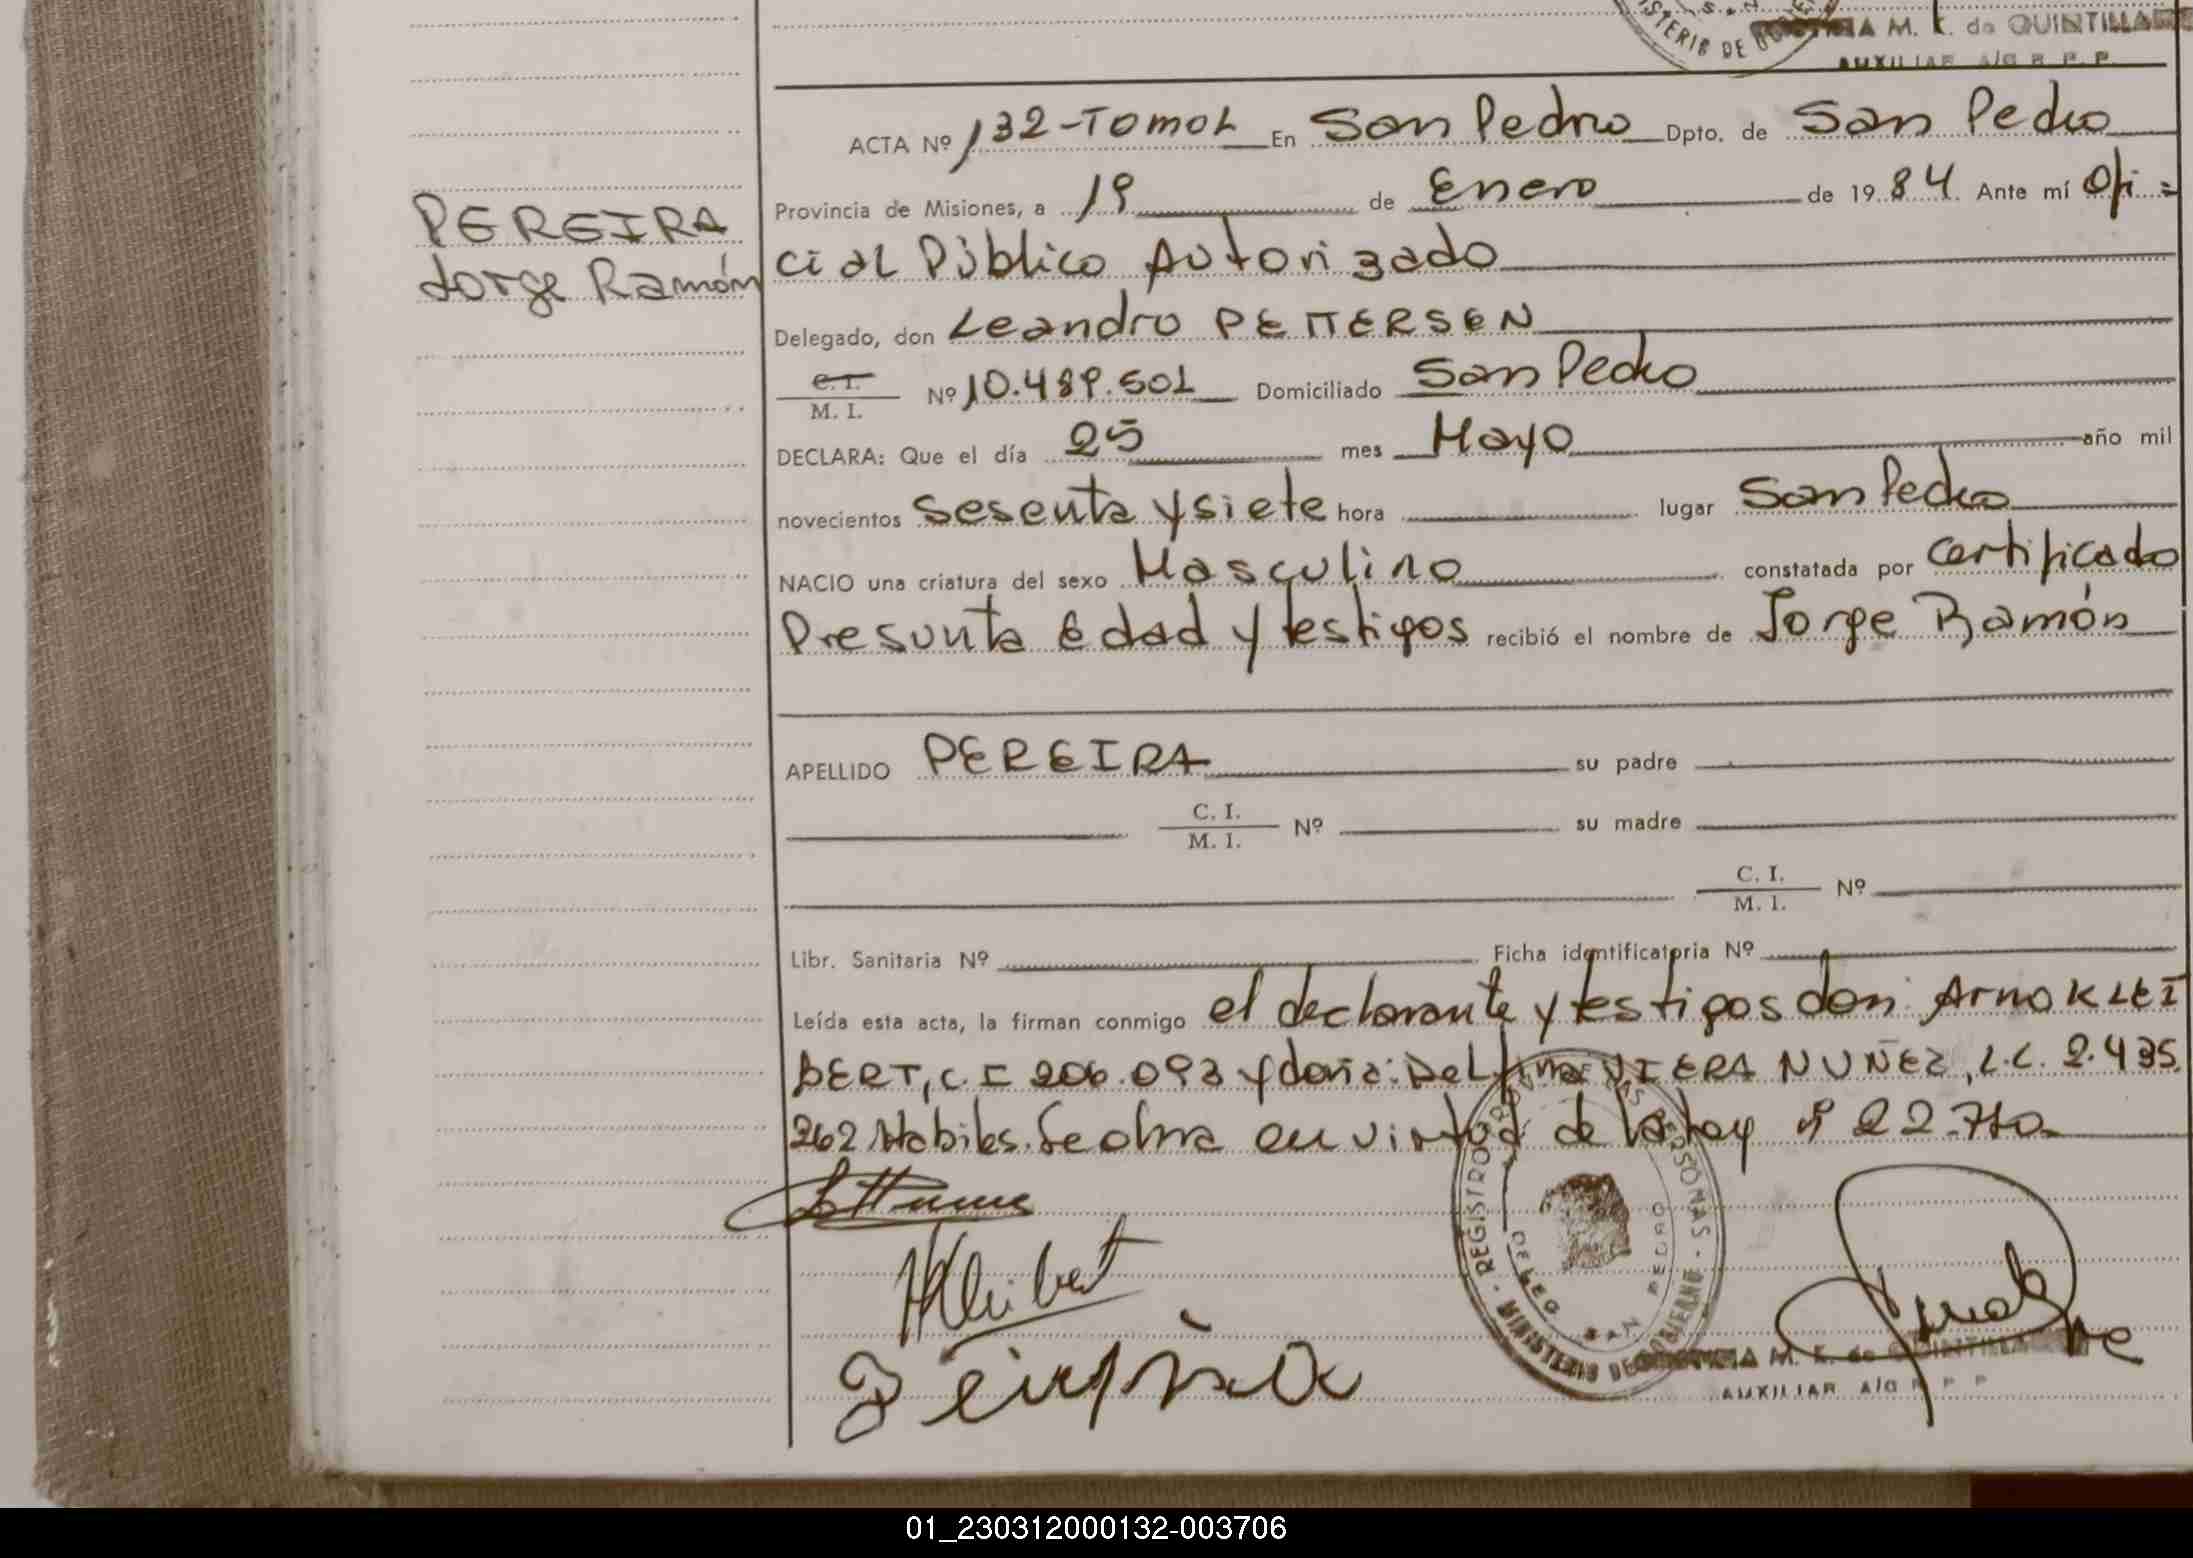 ISTERIO DE GO
M. K. de QUINTILLA
AUXILIAR A/G R. P. P.
ACTA Nº 132-TOMO I En San Pedro Dpto. de San Pedro
Provincia de Misiones, a 19 de Enero de 1984 Ante mí Ofi=
PEREIRA
Jorge Ramón
cial Público Autorizado
Delegado, don Leandro PETTERSEN
C. I.
M. I. Nº 10.489.501 Domiciliado San Pedro
DECLARA: Que el día 25 mes Mayo año mil
novecientos sesenta y siete hora lugar San Pedro
NACIO una criatura del sexo Masculino constatada por Certificado
Presunta Edad y testigos recibió el nombre de Jorge Ramón
APELLIDO PEREIRA su padre
C. I.
M. I. Nº su madre
C. I.
M. I. Nº
Libr. Sanitaria Nº Ficha identificatoria Nº
Leída esta acta, la firman conmigo el declarante y testigos don Arno KLEI
BERT, C.I 206.093 y doña: Delfina VIERA NUÑEZ, L.C. 2.435.
262 Habiles. Se labra en virtud de la Ley nº 22.710.
REGISTRO PROV. DE LAS PERSONAS
DELEG. SAN PEDRO
MINISTERIO DE GOBIERNO
M. K. de QUINTILLA
AUXILIAR A/G R P P
01_230312000132-003706